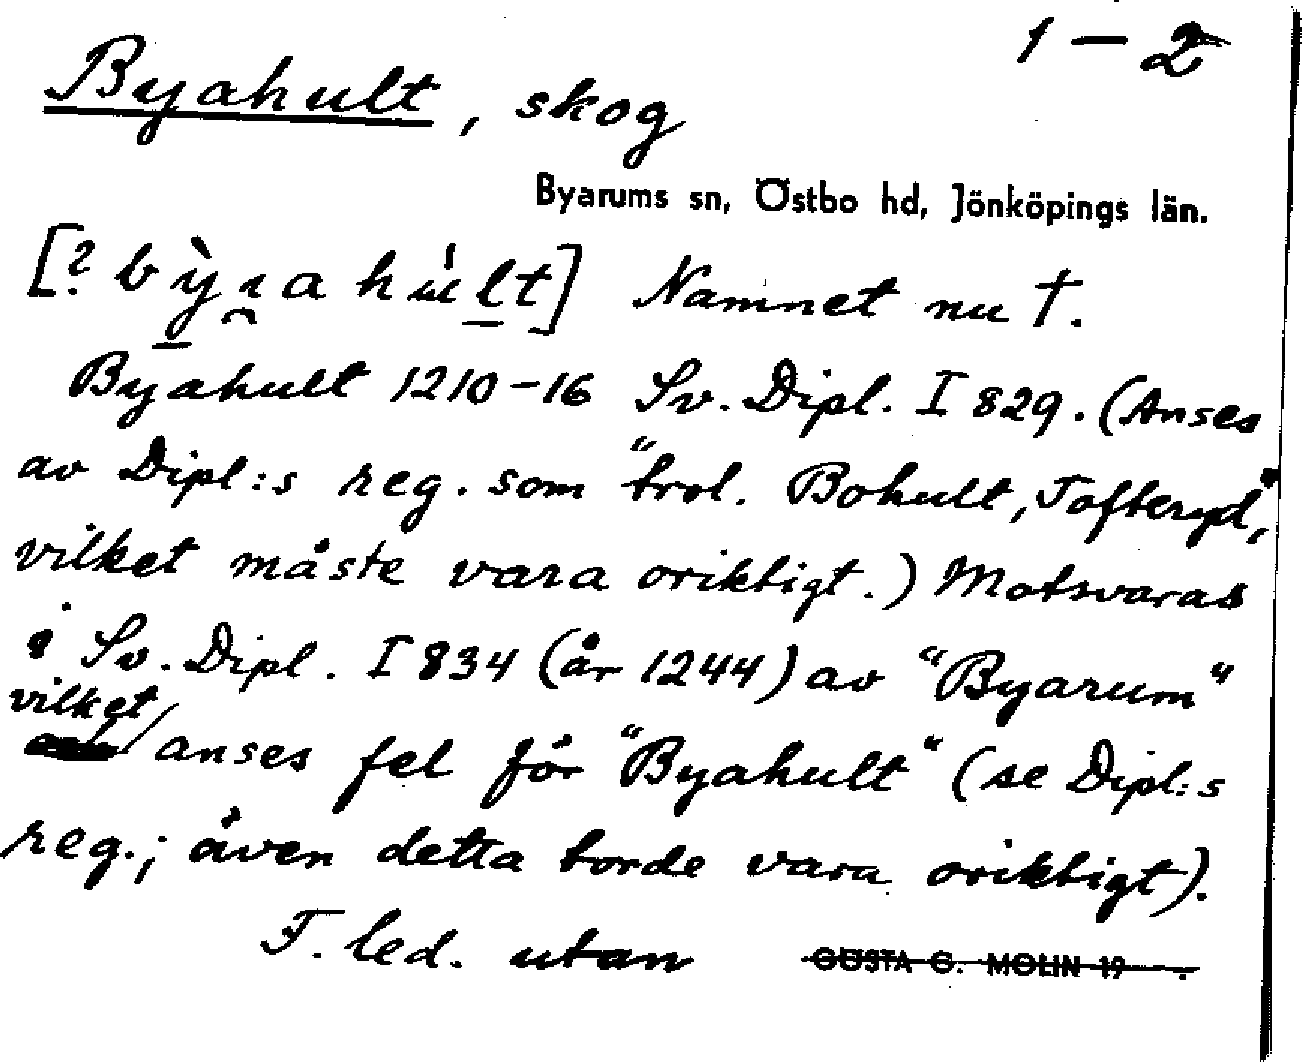 1 – 2
Byahult, skog
Byarums sn, Östbo hd, Jönköpings län.
[? bỳɿa hu̍lt] Namnet nu †.
Byahult 1210–16 Sv. Dipl. I 829. (Anses
av Dipl:s reg. som "trol. Bohult, Tofteryd,"
vilket måste vara oriktigt.) Motsvaras
i Sv. Dipl. I 834 (år 1244) av "Byarum"
vilket anses fel för "Byahult" (se Dipl:s
reg.; även detta torde vara oriktigt).
F. led. utan GÖSTA G. MOLIN 19 .